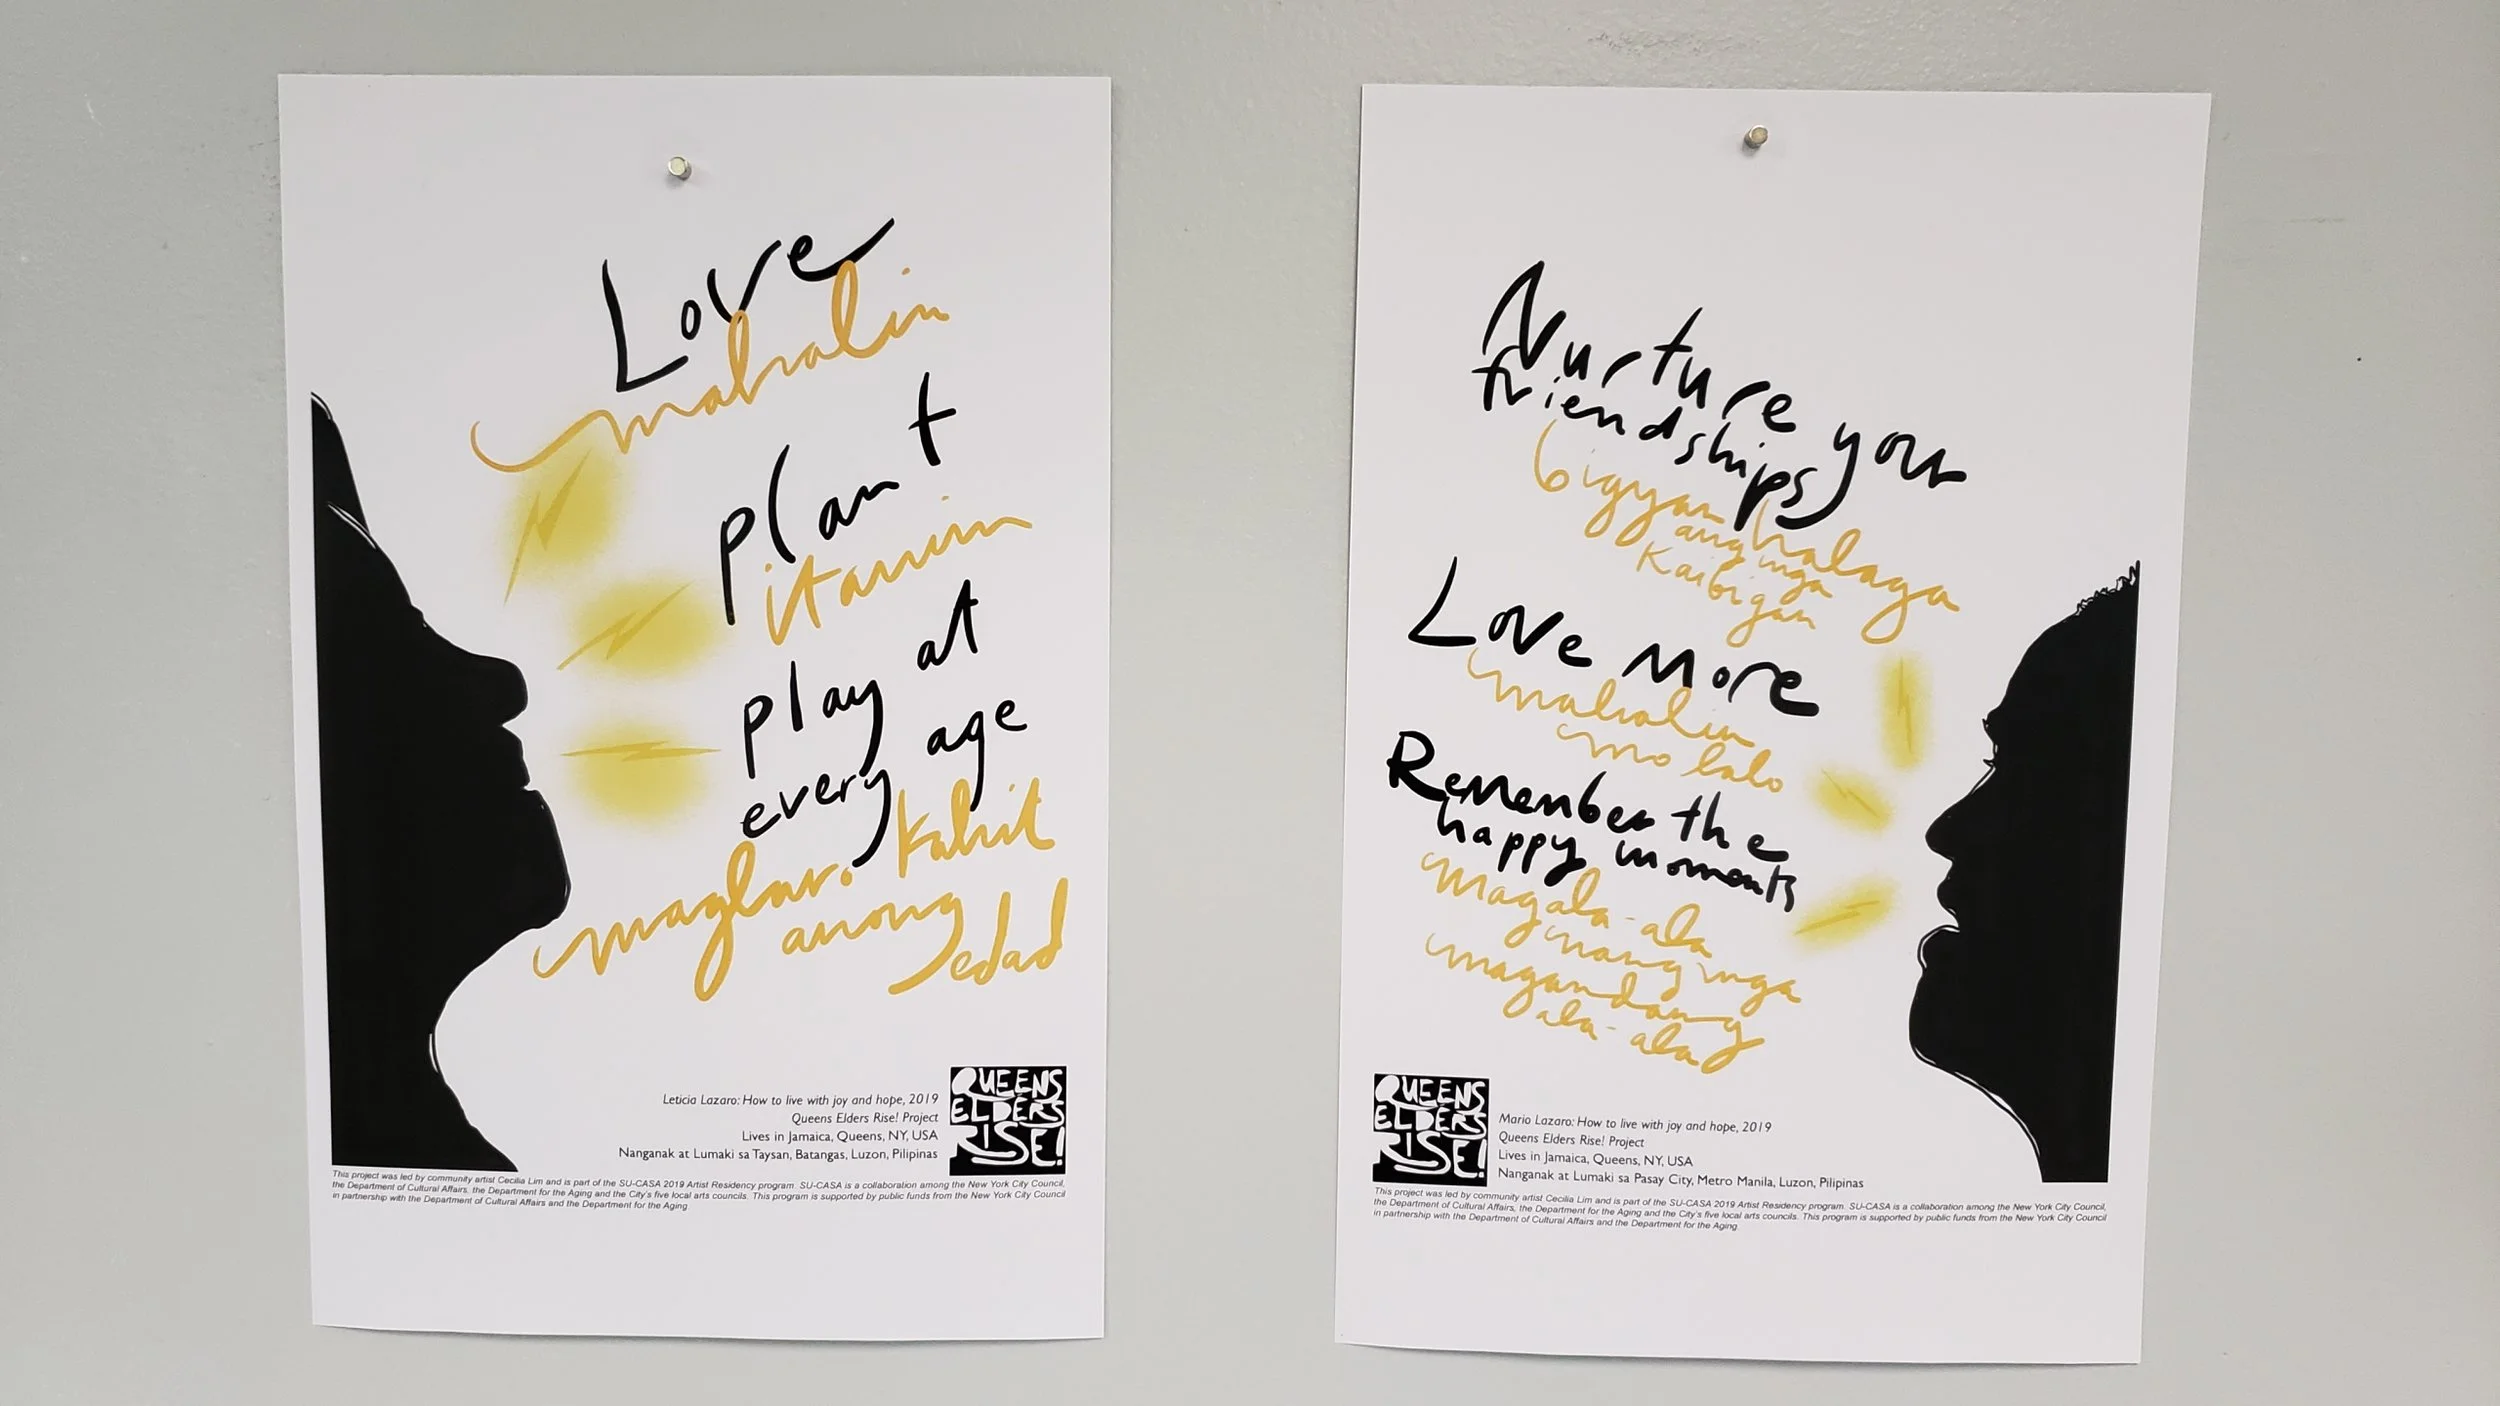 Love
mahalin
plant
itanim
play at
every age
maglaro kahit
anong
edad
Leticia Lazaro: How to live with joy and hope, 2019
Queens Elders Rise! Project
Lives in Jamaica, Queens, NY, USA
Nanganak at Lumaki sa Taysan, Batangas, Luzon, Pilipinas
QUEENS
ELDERS
RISE!
This project was led by community artist Cecilia Lim and is part of the SU-CASA 2019 Artist Residency program. SU-CASA is a collaboration among the New York City Council,
the Department of Cultural Affairs, the Department for the Aging and the City's five local arts councils. This program is supported by public funds from the New York City Council
in partnership with the Department of Cultural Affairs and the Department for the Aging.
Nurture your
friendships
bigyan halaga
ang mga
Kaibigan
Love More
mahalin
mo lalo
Remember the
happy moments
Magala-ala
nang mga
magandang
ala-ala
QUEENS
ELDERS
RISE!
Mario Lazaro: How to live with joy and hope, 2019
Queens Elders Rise! Project
Lives in Jamaica, Queens, NY, USA
Nanganak at Lumaki sa Pasay City, Metro Manila, Luzon, Pilipinas
This project was led by community artist Cecilia Lim and is part of the SU-CASA 2019 Artist Residency program. SU-CASA is a collaboration among the New York City Council,
the Department of Cultural Affairs, the Department for the Aging and the City's five local arts councils. This program is supported by public funds from the New York City Council
in partnership with the Department of Cultural Affairs and the Department for the Aging.